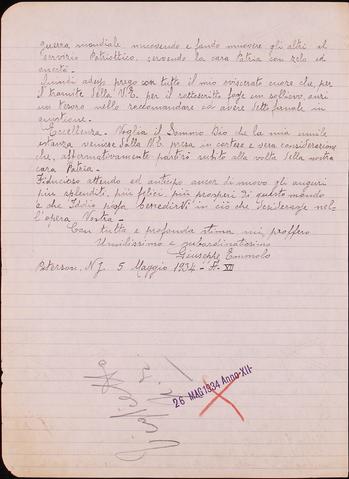 guerra mondiale muovendo e fando muovere gli altri al
servizio Patriottico, servendo la cara Patria con zelo ed
onestà.
Quindi adesso prego con tutto il mio sviscerato cuore che, per
il tramite della V.E. per il sottoscritto fosse un sollievo, anzi
un tesoro nello raccomandare ed avere detto formale in
questione.
Eccellenza. Voglia il Sommo Dio che la mia umile
istanza venisse dalla V.E. presa in cortese e vera considerazione
che, affermativamente partirò subito alla volta della nostra
cara Patria.
Fiducioso attendo ed anticipo ancor di nuovo gli auguri
più splendidi, più felici, più prosperi di questo mondo
e che Iddio possa benedirvi in ciò che desiderate nel-
l'opera Vostra.
Con tutta e profonda stima mi proffero
Umilissimo e subordinatissimo
Giuseppe Emmolo
Paterson, N.J. 5 Maggio 1934 - F. XII
26 MAG 1934 Anno XII